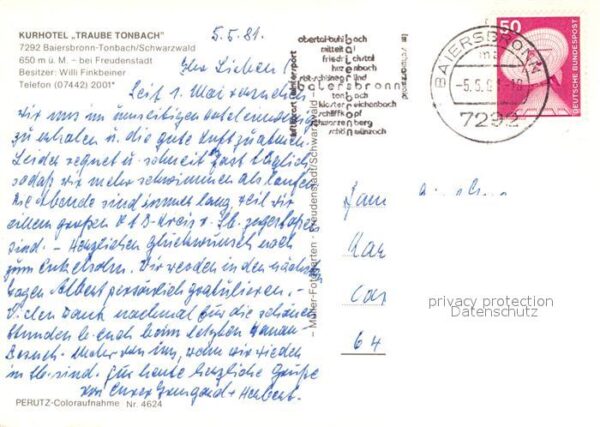 KURHOTEL „TRAUBE TONBACH"
7292 Baiersbronn-Tonbach/Schwarzwald
650 m ü. M. – bei Freudenstadt
Besitzer: Willi Finkbeiner
Telefon (07442) 2001*
5.5.81.
Ihr Lieben!
Seit 1. Mai
wir uns im umseitigen
zu erholen u. die gute Luft zu atmen.
Leider regnet u. schneit fast täglich
sodaß wir mehr schwimmen als laufen
die Abende sind immer lang, weil wir
einem großen Kreis v.
sind. – Herzlichen Glückwunsch noch
zum Enkelsohn. Wir werden in den nächsten
Tagen Albert persönlich gratulieren. –
Vielen Dank nochmal für die schönen
Stunden b. euch beim letzten
Besuch. Mehr von uns, wenn wir wieder
in sind. Für heute herzliche Grüße
von Eurer Irmgard + Herbert.
PERUTZ-Coloraufnahme Nr. 4624
obertal-buhlbach
mitteltal
friedrichstal
huzenbach
röt-schönegründ
baiersbronn
tonbach
klosterreichenbach
schifflkopf
schwarzenberg
schönmünzach
luftkurort wintersport
BAIERSBRONN
-5.5.81-18
7292
50
DEUTSCHE BUNDESPOST
Freudenstadt/Schwarzwald
Fam
Kar
64
privacy protection
Datenschutz